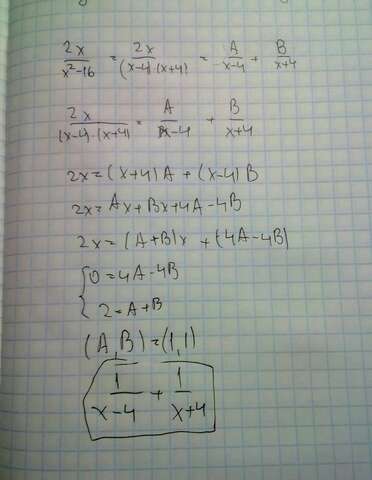 2x/(x²-16) = 2x/((x-4)·(x+4)) = A/(x-4) + B/(x+4)
2x/((x-4)·(x+4)) = A/(x-4) + B/(x+4)
2x=(x+4)A+(x-4)B
2x=Ax+Bx+4A-4B
2x=(A+B)x+(4A-4B)
{0=4A-4B
2=A+B
(A,B)=(1,1)
1/(x-4) + 1/(x+4)